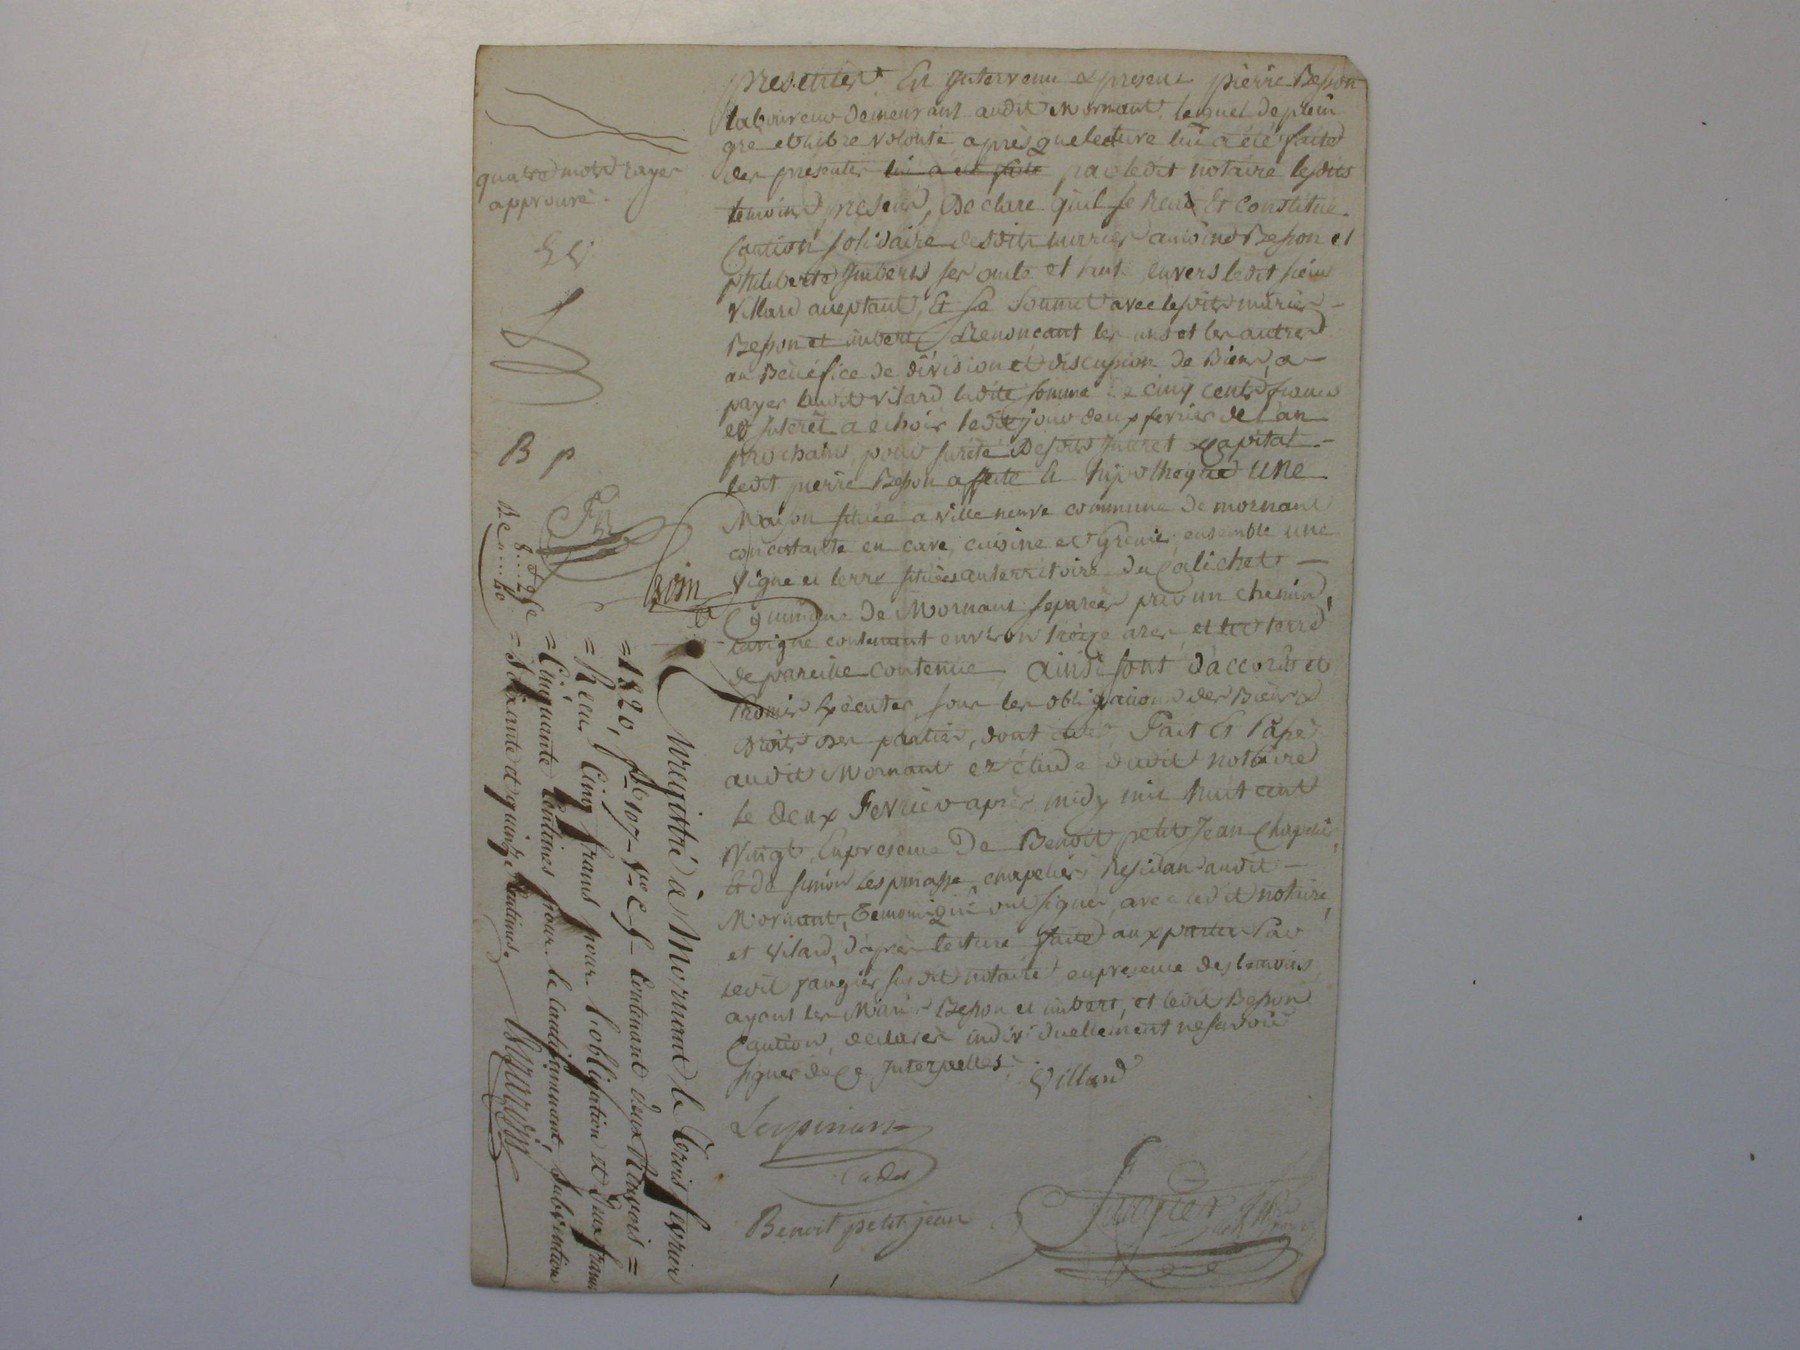 presentes En Intervenu et present pierre Besson
laboureur demeurant audit Mornant, lequel de plein
gre et libre volonté après que lecture lui a été faite
des presentes lui a été faite par ledit notaire lesdits
temoins presens, Declare qu'il se Rend Et Constitue
Caution solidaire desdits mariés Besson et
philiberte Imbert ses oncle et tante envers ledit sieur
Villard acceptant, Et se soumet avec lesdits mariés
Besson et imbert, Renonçant les uns et les autres
au Bénéfice de division et discussion de Biens, a
payer audit Vilard ladite somme de cinq cents francs
et Interêt a échoir ledit jour deux fevrier de l'an
prochain, pour sureté desdits Interet capital
ledit pierre Besson affecte et hipotheque une
Maison située a ville neuve commune de mornant
concistante en cave, cuisine et Grenier, ensemble une
vigne et terre situées au territoire du Calichet
Commune de Mornant separées par un chemin,
la vigne contenant environ treize ares et la terre
de pareille contenue ainsi sont d'accord et
Promis Exécuter, sous les obligations des Biens
droits des parties, dont acte, Fait Et Passé
audit Mornant ez étude dudit notaire
Le deux Fevrier après midy mil huit cent
Vingt, En presence De Benoit petit Jean Chapelier,
Et de simon Lespinasse chapelier, Residan audit
Mornant, Temoins qui ont signés, avec ledit notaire,
et Vilard, d'après lecture faite aux parties Par
ledit susdit notaire en presence des temoins
ayant les Mariés Besson et imbert, et ledit Besson
Caution, declarés individuellement ne savoir
signer de Ce Interpelles.
Villard
Lespinass
Cadet
Benoit petit jean
quatre mots rayés
approuvé.
B p
Enregistré à Mornant le trois fevrier
= 1820, f° 107 - V° c 5 - Contenant deux Renvois =
= Reçu Cinq francs pour l'obligation et deux francs
= Cinquante Centimes pour le Cautionnement, Subvention
= Soixante et quinze Centimes.